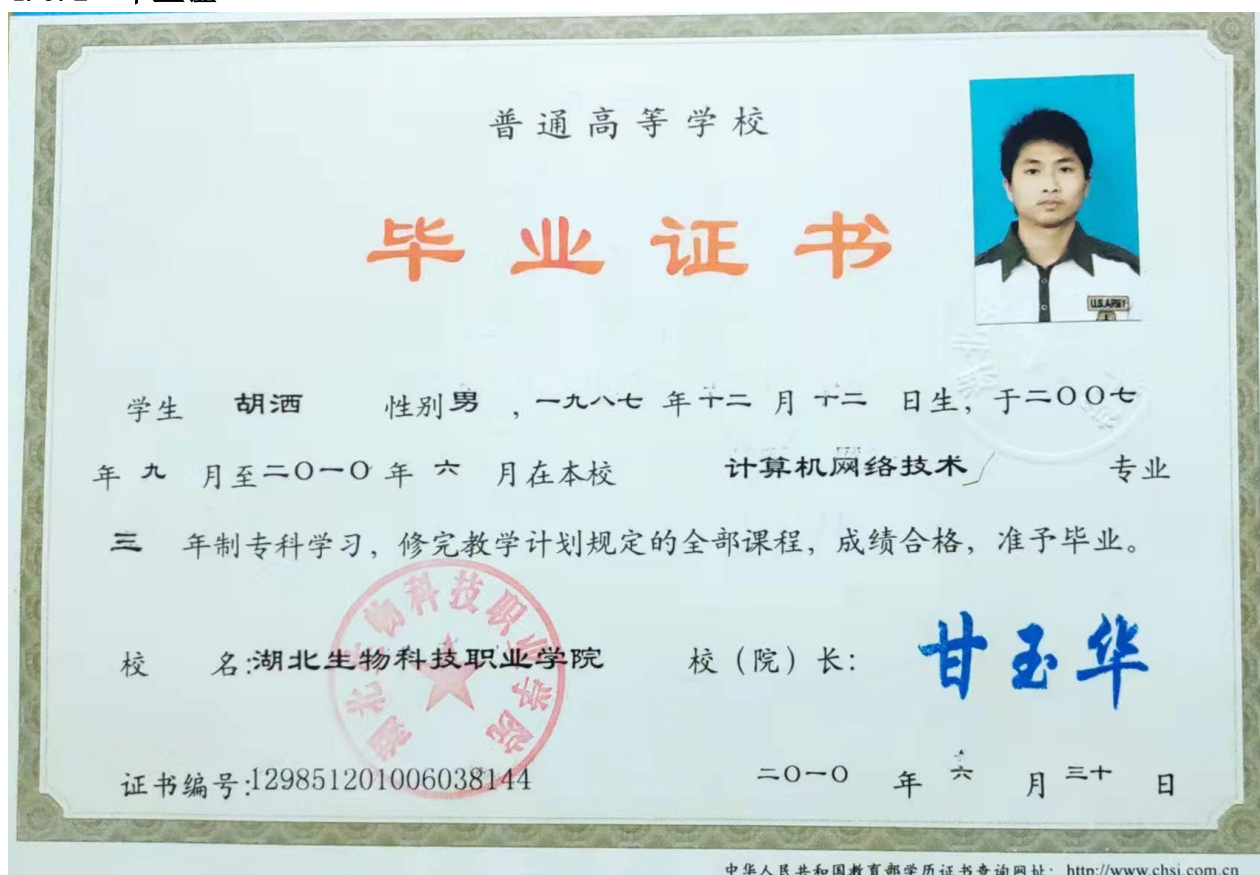 普通高等学校
毕业证书
U.S.ARMY
学生 胡洒 性别男，一九八七年十二月十二日生，于二〇〇七
年九月至二〇一〇年六月在本校 计算机网络技术 专业
三年制专科学习，修完教学计划规定的全部课程，成绩合格，准予毕业。
校 名:湖北生物科技职业学院 校（院）长: 甘玉华
湖北生物科技职业学院
证书编号:129851201006038144 二〇一〇年六月三十日
中华人民共和国教育部学历证书查询网址: http://www.chsi.com.cn